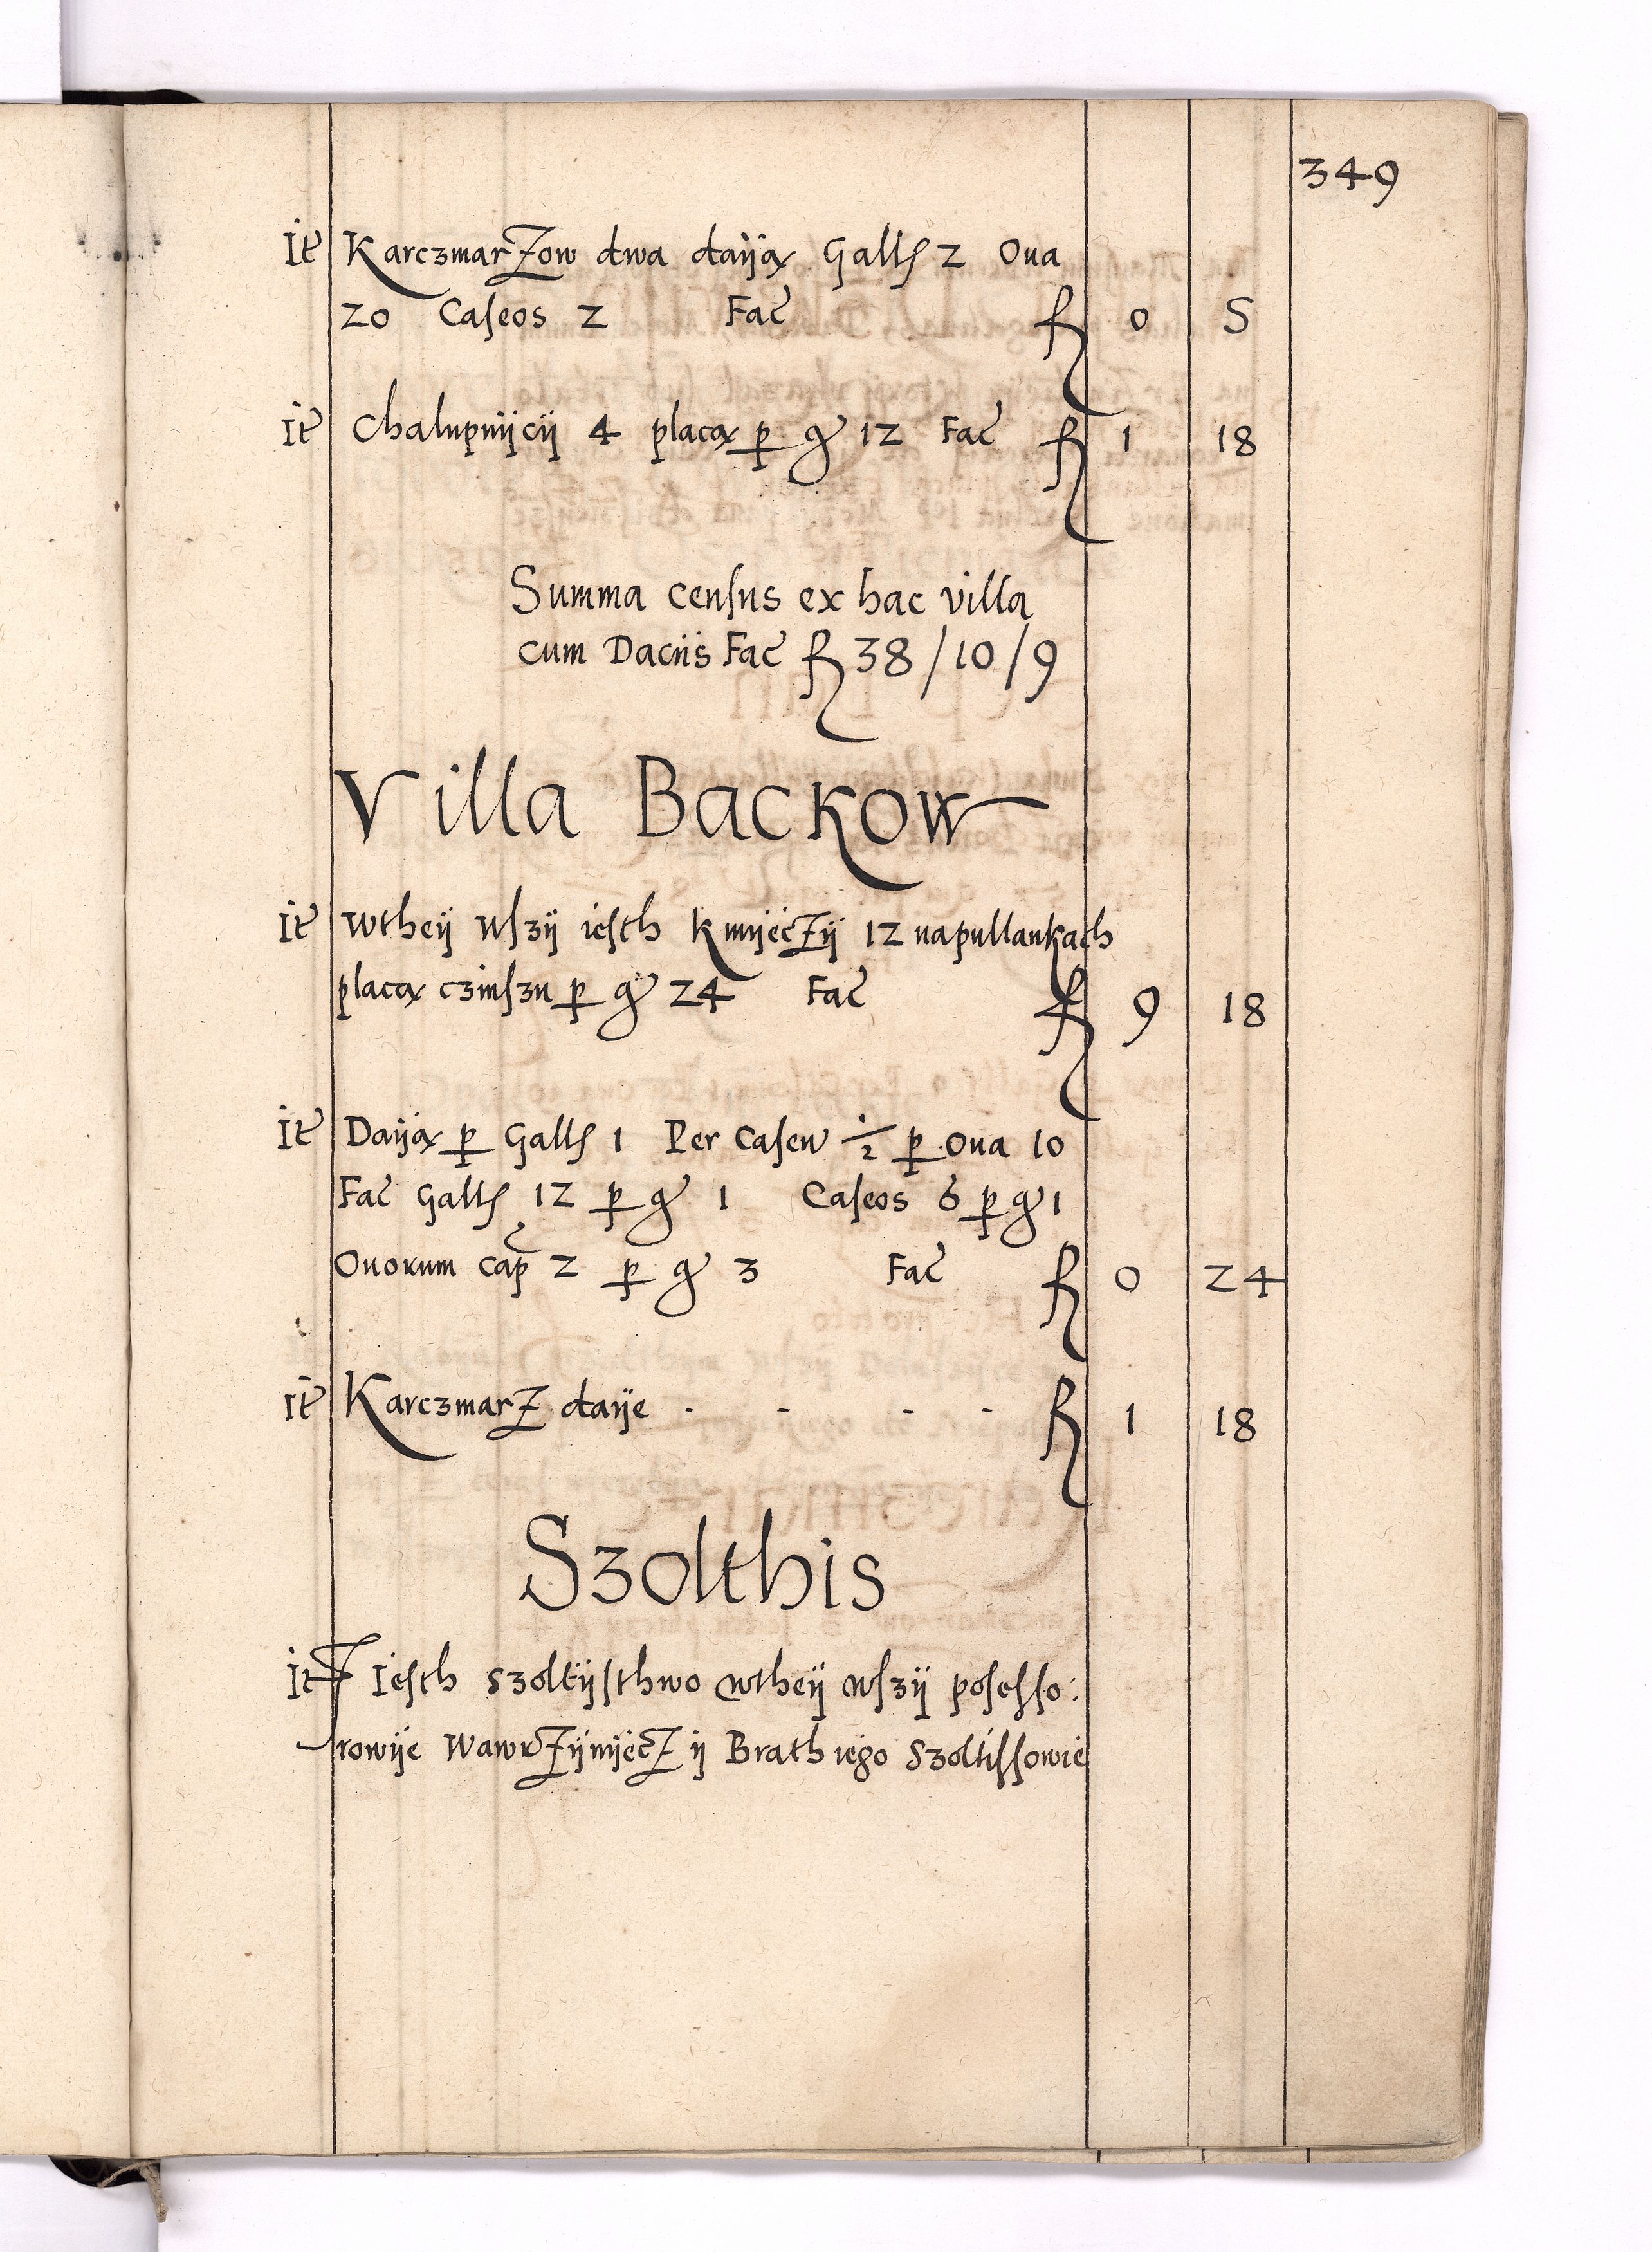 349
It Karczmarzow dwa daiją Galls 2 Oua
20 Caseos 2 Fac fl 0 5
It Chalupnijcij 4 placą p gr 12 Fac fl 1 18
Summa census ex hac villa
cum Daciis Fac fl 38/10/9
Villa Backow
It Wtheij wszij iesth kmijeczij 12 napullankach
placą czinszu p gr 24 Fac fl 9 18
It Daiją p Galls 1 Per Caseu ½ p Oua 10
Fac Galls 12 p gr 1 Caseos 6 p gr 1
Ouorum cap 2 p gr 3 Fac fl 0 24
It Karczmarz daije - - - - fl 1 18
Szolthis
It Iesth szoltijsthwo wtheij wszij posesso:
rowije Wawrzijnijeczij Brath iego Szoltissowie